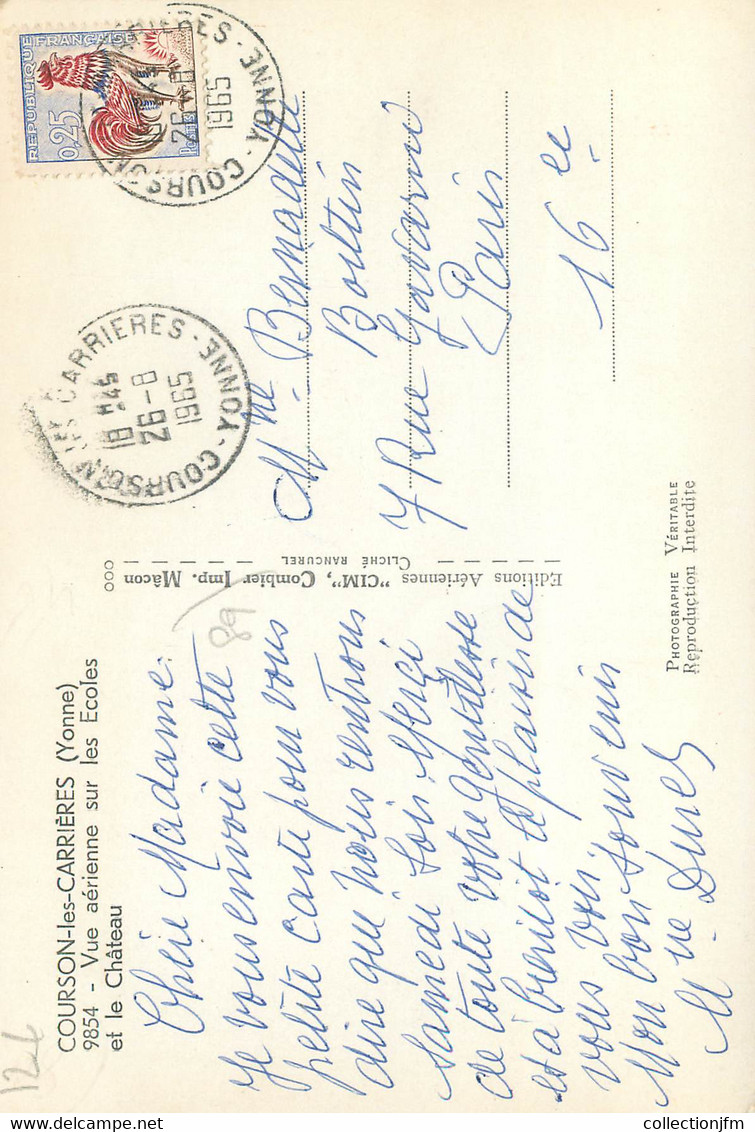 COURSON-les-CARRIÈRES (Yonne)
9854 - Vue aérienne sur les Ecoles
et le Château
Chère Madame.
Je vous envoie cette
petite carte pour vous
dire que nous rentrons
samedi soir. Merci
de toute votre gentillesse
et à bientôt le plaisir de
vous voir
Mon bon souvenir
Editions Aériennes "CIM", Combier Imp. Mâcon
CLICHÉ RANCUREL
PHOTOGRAPHIE VÉRITABLE
Reproduction Interdite
REPUBLIQUE FRANÇAISE
0,25
Postes
COURSON LES CARRIERES - YONNE
26-8
1965
COURSON LES CARRIERES - YONNE
18H45
26-8
1965
Mme Bernadette
7 Rue Gavarni
Paris
16 ee
89
12L
collectionjfm